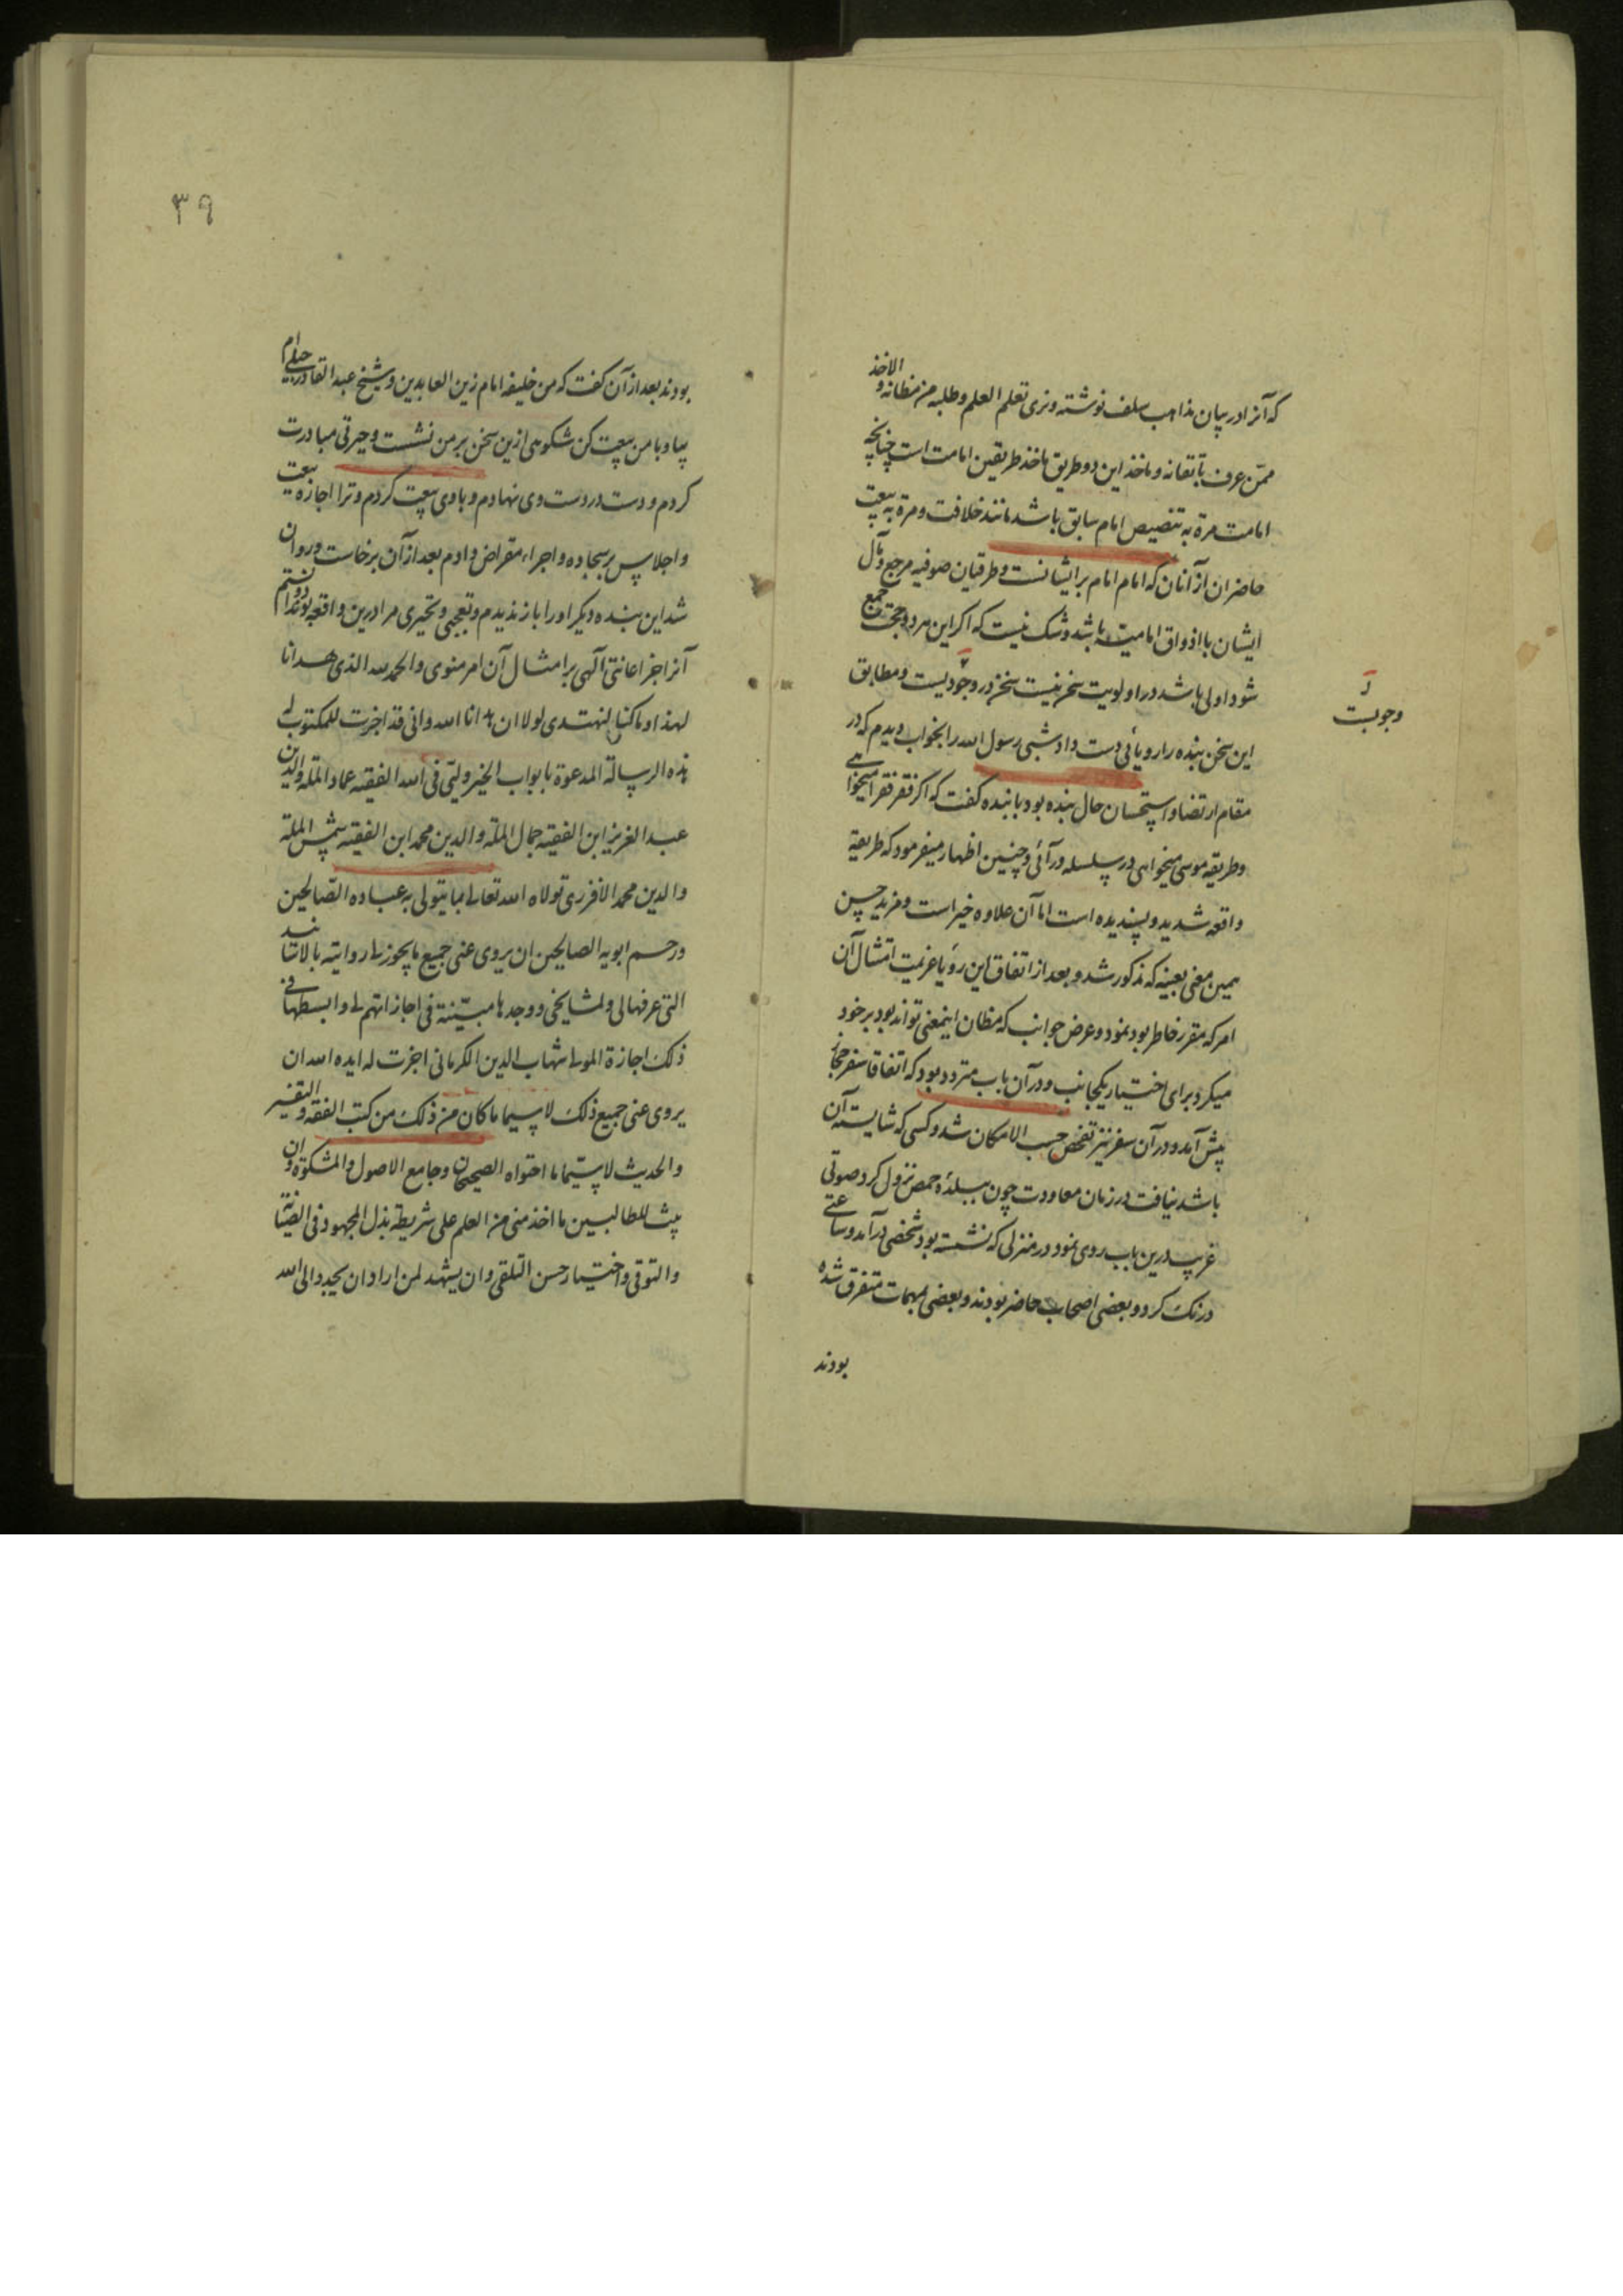 که آنرا در بیان مذاهب سلف نوشته و نری تعلم العلم و طلبه من مظانه و الاخذ
ممّن عرف باتقانه و ماخذ این دو طریق ماخذ طریقین امامت است چنانچه
امامت مرة به تنصیص امام سابق باشد مانند خلافت و مرة به بیعت
حاضران از آنان که امام امام بر ایشانست و طرقیان صوفیه مرجع و مآل
ایشان با اذواق امامیت باشد و شک نیست که اکر این هر دو حجت جمع
شود اولی باشد در اولویت سخن نیست سخن در وجودیست و مطابق
وجوبست
این سخن بنده را رویائی دست داد شبی رسول الله را بخواب دیدم که در
مقام ارتضا و استحسان حال بنده بود با بنده کفت که اکر فقر فقرا میخواهی
و طریقه موسی میخواهی در سلسله درآئی و چنین اظهار میفرمود که طریقه
واقعه شدید و پسندیده است اما آن علاوه خیر است و مزید حسن
همین معنی بعینه که مذکور شد و بعد از اتفاق این رؤیا عزیمت امتثال آن
امر که مقرر خاطر بود نمود و عرض جوانب که مظان اینمعنی تواند بود بر خود
میکرد برای اختیار یکجانب و در آن باب متردد بود که اتفاقا سفر حجاز
پیش آمد و در آن سفر نیز تفحص حسب الامکان شد و کسی که شایسته آن
باشد نیافت در زمان معاودت چون ببلدهٔ حمص نزول کرد صوتی
غریب درین باب روی نمود در منزلی که نشسته بود شخصی درآمد و ساعتی
درنک کرد و بعضی اصحاب حاضر بودند و بعضی بمهمات متفرق شده
بودند
۳۹
بودند بعد از آن کفت که من خلیفه امام زین العابدین و شیخ عبد القادر جیلی ام
بیا و با من بیعت کن شکوهی ازین سخن بر من نشست و حیرتی مبادرت
کردم و دست در دست وی نهادم و با وی بیعت کردم و ترا اجازه بیعت
و اجلاس بر سجاده و اجراء مقراض دادم بعد از آن برخاست و روان
شد این بنده دیکر او را باز ندیدم و تعجبی و تحیری مرا درین واقعه بود و ندانستم
آنرا جز اعانتی آلهی بر امتثال آن امر منوی و الحمد لله الذی هدانا
لهذا و ما کنا لنهتدی لولا ان هدانا الله و انی قد اجزت للمکتوب له
هذه الرسالة المدعوة بابواب الخیر ولیّی فی الله الفقیه عماد الملة والدین
عبد العزیز ابن الفقیه جمال الملة و الدین محمد ابن الفقیه شمس الملة
و الدین محمد الافزری تولاه الله تعالی بما یتولی به عباده الصالحین
و رحم ابویه الصالحین ان یروی عنی جمیع ما یجوز لی روایته بالاسانید
التی عرفها لی و لمشایخی و وجدها مبیّنة فی اجازاتهم لی و ابسطها فی
ذلک اجازة المولی شهاب الدین الکرمانی اجزت له ایده الله ان
یروی عنی جمیع ذلک لا سیما ما کان من ذلک من کتب الفقه و التفسیر
و الحدیث لا سیما ما احتواه الصحیحان و جامع الاصول و المشکوة و ان
یبث للطالبین ما اخذ منی من العلم علی شریطة بذل المجهود فی الضبط
و التوقی و اختیار حسن التلقی و ان یشهد لمن اراد ان یجدد الی الله